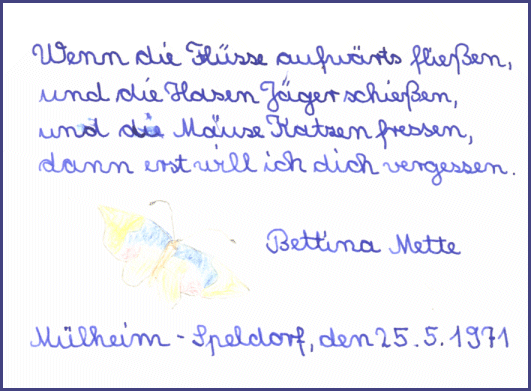 Wenn die Flüsse aufwärts fließen,
und die Hasen Jäger schießen,
und die Mäuse Katzen fressen,
dann erst will ich dich vergessen.
Bettina Mette
Mülheim - Speldorf, den 25.5.1971